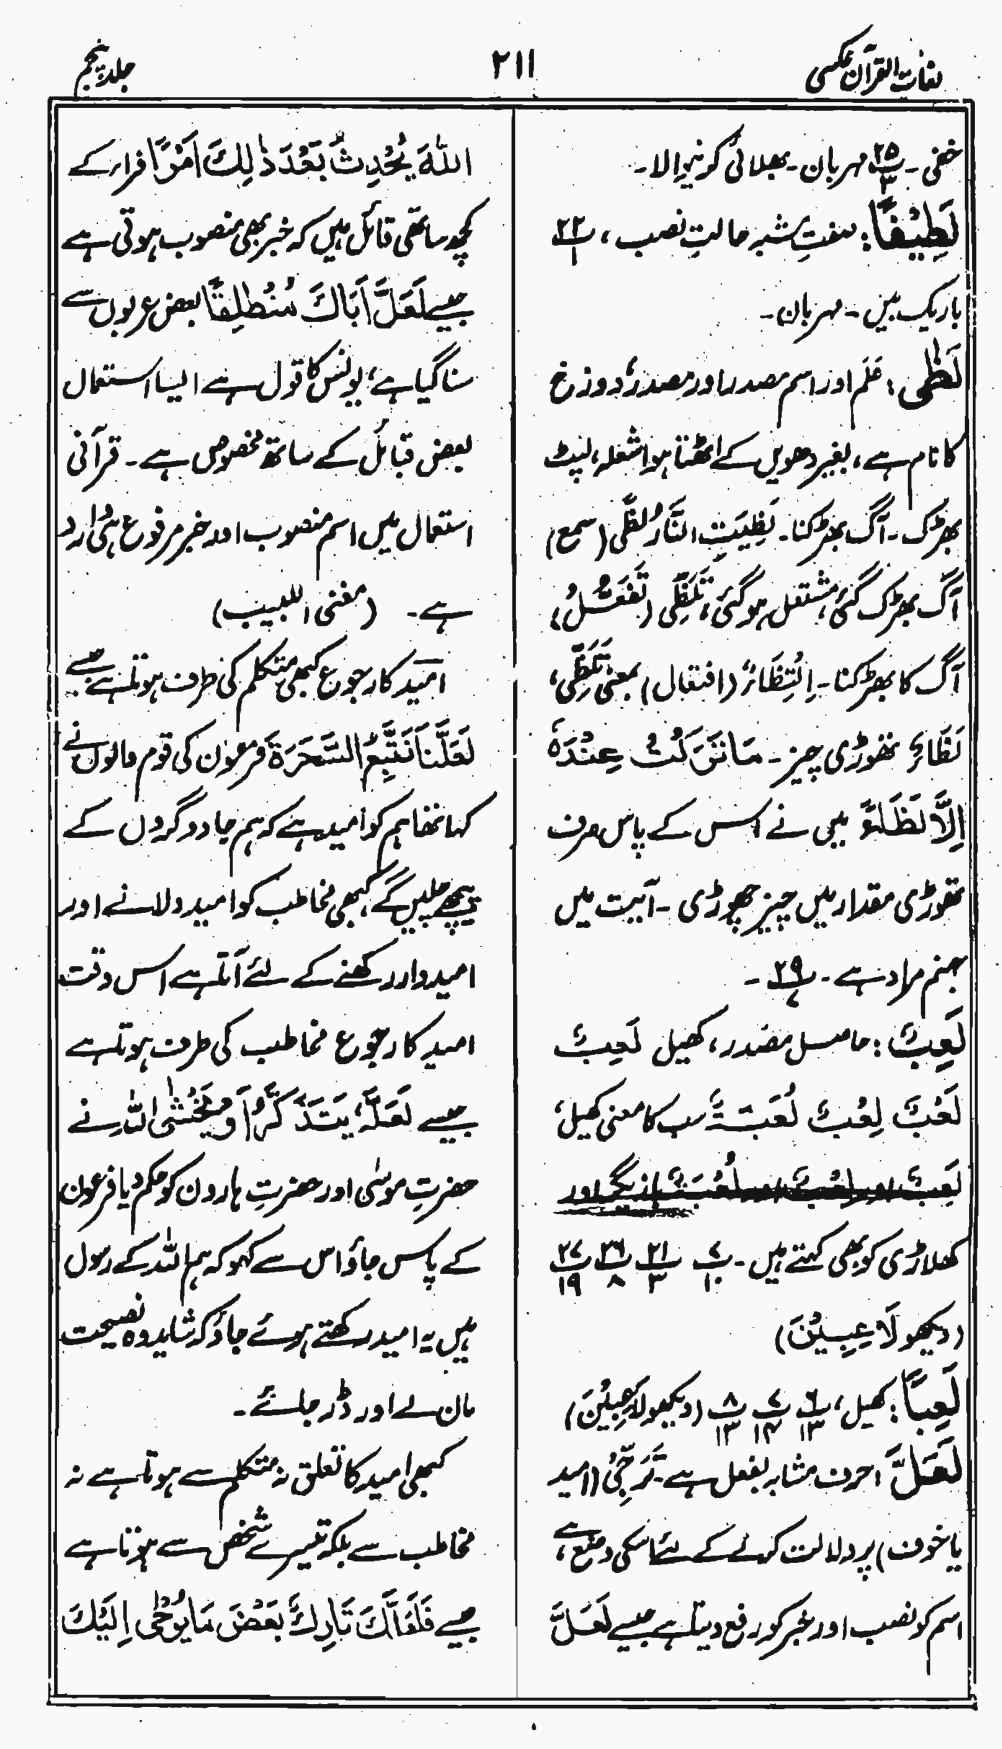 لغات القرآن عکسی
۲۱۱
جلد پنجم
خفی ۔ پ۲۵/۳ مہربان ۔ بھلائی کرنیوالا ۔
لَطِيْفًا : صفتِ مشبہ حالتِ نصب، پ۲۲/۱
باریک بیں ۔ مہربان ۔
لَظٰى : عَلَم اور اسم مصدر اور مصدر، دوزخ
کا نام ہے، بغیر دھویں کے اٹھتا ہوا شعلہ، لپٹ
بھڑک ۔ آگ بھڑکنا ۔ لَظِيَتِ النَّارُ لَظًى (سمع)
آگ بھڑک گئی، مشتعل ہوگئی، تَلَظِّىْ (تَفَعُّلُ)
آگ کا بھڑکنا ۔ اِلْتِظَاءُ (افتعال) بمعنی تَلَظِّىْ،
لَظَاءُ تھوڑی چیز ۔ مَا تَرَكْتُ عِنْدَهٗ
اِلَّا لَظَاءً میں نے اس کے پاس صرف
تھوڑی مقدار میں چیز چھوڑی ۔ آیت میں
جہنم مراد ہے ۔ پ۲۹/۷ ۔
لَعِبٌ : حاصل مصدر، کھیل لَعِبٌ
لَعْبٌ لِعْبٌ لُعْبَةٌ سب کا معنی کھیل،
لَعِبٌ اور لِعْبٌ اور لُعْبَةٌ بازیگر اور
کھلاڑی کو بھی کہتے ہیں ۔ پ۷/۱۰ پ۲۱/۳ پ۲۶/۸ پ۲۷/۱۹
(دیکھو لَاعِبِيْنَ)
لَعِبًا : کھیل، پ۶/۱۳ پ۷/۱۴ پ۸/۱۳ (دیکھو لَاعِبِيْنَ)
لَعَلَّ : حرف مشابہ بفعل ہے ۔ تَرَجِّىْ (امید
یا خوف) پر دلالت کرنے کے لئے اسکی وضع ہے،
اسم کو نصب اور خبر کو رفع دیتا ہے جیسے لَعَلَّ
اللّٰهَ يُحْدِثُ بَعْدَ ذٰلِكَ اَمْرًا فراء کے
کچھ ساتھی قائل ہیں کہ خبر بھی منصوب ہوتی ہے
جیسے لَعَلَّ اَبَاكَ مُنْطَلِقًا بعض عربوں سے
سنا گیا ہے، یونس کا قول ہے ایسا استعمال
بعض قبائل کے ساتھ مخصوص ہے ۔ قرآنی
استعمال میں اسم منصوب اور خبر مرفوع ہی وارد
ہے ۔ (مغنی اللبیب)
امید کا رجوع کبھی متکلم کی طرف ہوتا ہے جیسے
لَعَلَّنَا نَتَّبِعُ السَّحَرَةَ فرعون کی قوم والوں نے
کہا تھا ہم کو امید ہے کہ ہم جادوگروں کے
پیچھے چلیں گے، کبھی مخاطب کو امید دلانے اور
امیدوار رکھنے کے لئے آتا ہے اس وقت
امید کا رجوع مخاطب کی طرف ہوتا ہے
جیسے لَعَلَّهٗ يَتَذَكَّرُ اَوْ يَخْشٰى اللہ نے
حضرتِ موسٰی اور حضرتِ ہارون کو حکم دیا فرعون
کے پاس جاؤ اس سے کہو کہ ہم اللہ کے رسول
ہیں یہ امید رکھتے ہوئے جاؤ کہ شاید وہ نصیحت
مان لے اور ڈر جائے ۔
کبھی امید کا تعلق نہ متکلم سے ہوتا ہے نہ
مخاطب سے بلکہ تیسرے شخص سے ہوتا ہے
جیسے فَلَعَلَّكَ تَارِكٌ بَعْضَ مَا يُوْحٰى اِلَيْكَ